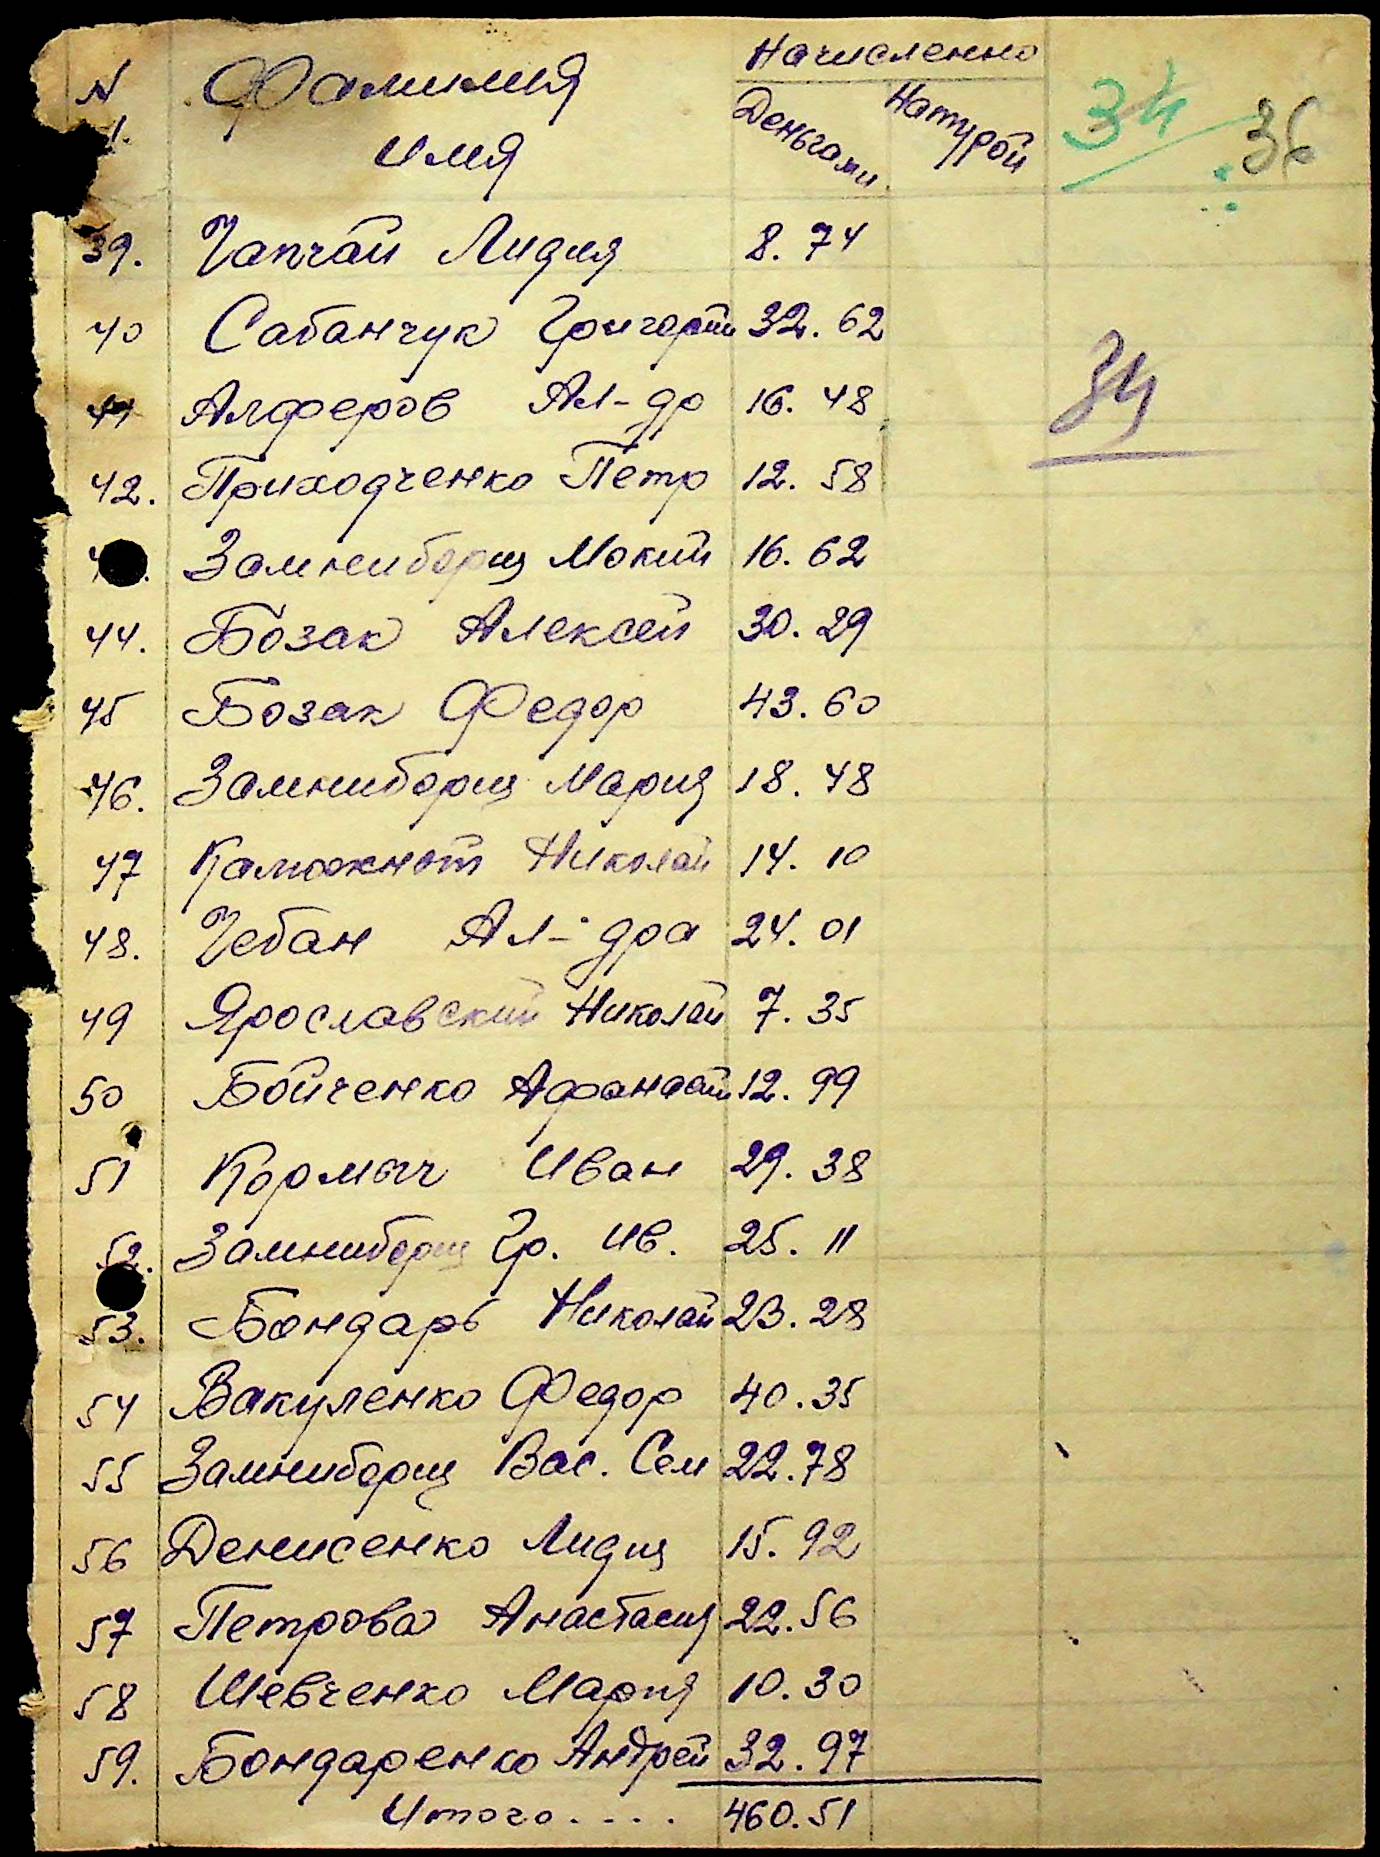 N Фамилия Начисленно
имя Деньгами Натурой 34 36
39. Чапчай Лидия 8.74
40 Сабанчук Григорий 32.62
41 Алферов Ал-др 16.48 34
42. Приходченко Петр 12.58
Замниборщ Мокий 16.62
44. Бозак Алексей 30.29
45 Бозак Федор 43.60
46. Замниборщ Мария 18.48
47 Николай 14.10
48. Чебан Ал-дра 24.01
49 Ярославский Николай 7.35
50 Бойченко Афанасий 12.99
51 Кормыч Иван 29.38
52. Замниборщ Гр. Ив. 25.11
53. Бондарь Николай 23.28
54 Вакуленко Федор 40.35
55 Замниборщ Вас. Сем 22.78
56 Денисенко Лидия 15.92
57 Петрова Анастасия 22.56
58 Шевченко Мария 10.30
59. Бондаренко Андрей 32.97
Итого.... 460.51